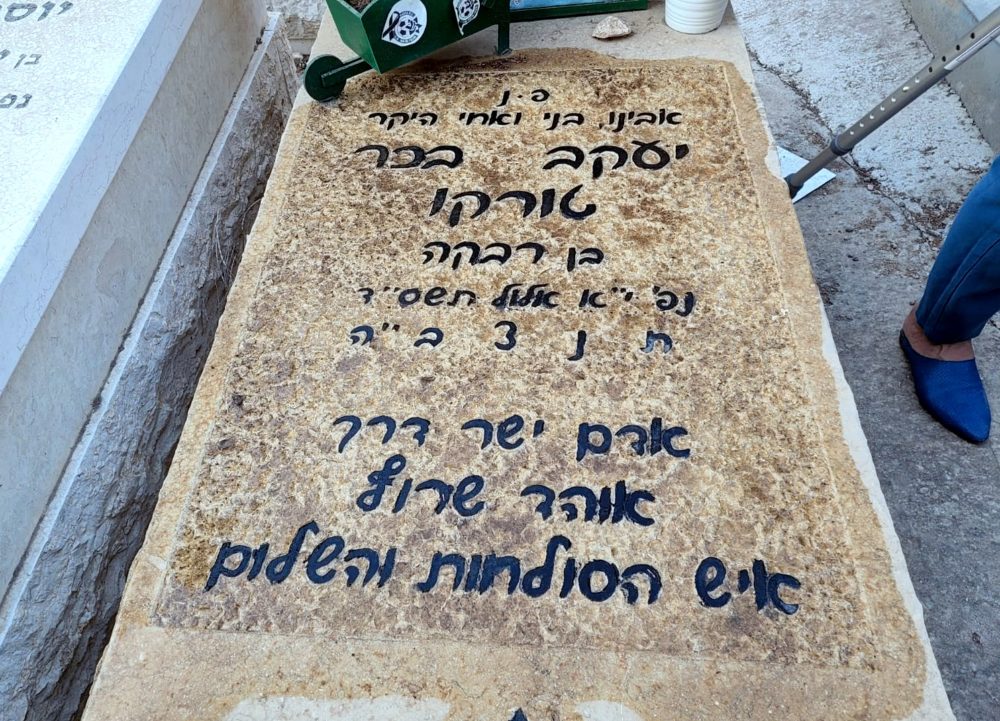 פ.נ
אבינו, בני ואחי היקר
יעקב בכר
טורקו
בן רבקה
נפ' י"א אלול תשס"ד
ת נ צ ב "ה
אדם ישר דרך
אוהד שרוף
איש הסולחות והשלום
יוס
בן י
נפ